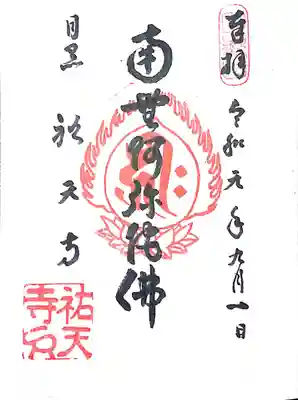 奉拝
令和元年九月一日
南無阿弥陀佛
目黒
祐天寺
祐天
寺印